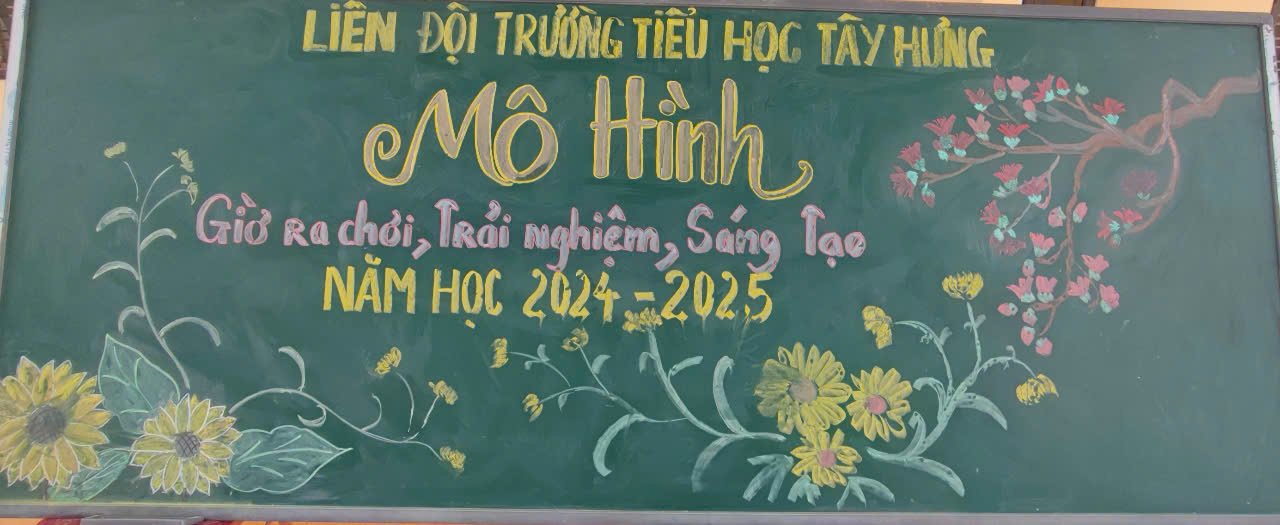 LIÊN ĐỘI TRƯỜNG TIỂU HỌC TÂY HƯNG
Mô Hình
Giờ Ra chơi, Trải nghiệm, Sáng Tạo
NĂM HỌC 2024-2025